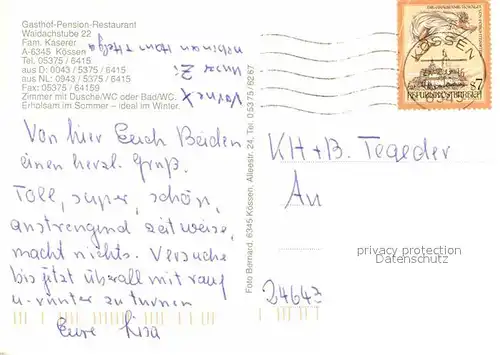 Gasthof-Pension-Restaurant
Waidachstube 22
Fam. Kaserer
A-6345 Kössen
Tel. 05375 / 6415
aus D: 0043 / 5375 / 6415
aus NL: 0943 / 5375 / 6415
Fax: 05375 / 64159
Zimmer mit Dusche/WC oder Bad/WC.
Erholsam im Sommer – ideal im Winter.
Vorne X
Unser Zi.
nebenan Helga
Von hier Euch Beiden
einen herzl. Gruß.
Toll, super, schön,
anstrengend zeitweise,
macht nichts. Versuche
bis jetzt überall mit rauf
u. runter zu turnen
Eure Lisa
Foto Bernard, 6345 Kössen, Alleestr. 24, Tel. 0 53 75 / 62 67
KÖSSEN
6345
S7
REPUBLIK ÖSTERREICH
KH + B. Tegeder
An
24643
privacy protection
Datenschutz